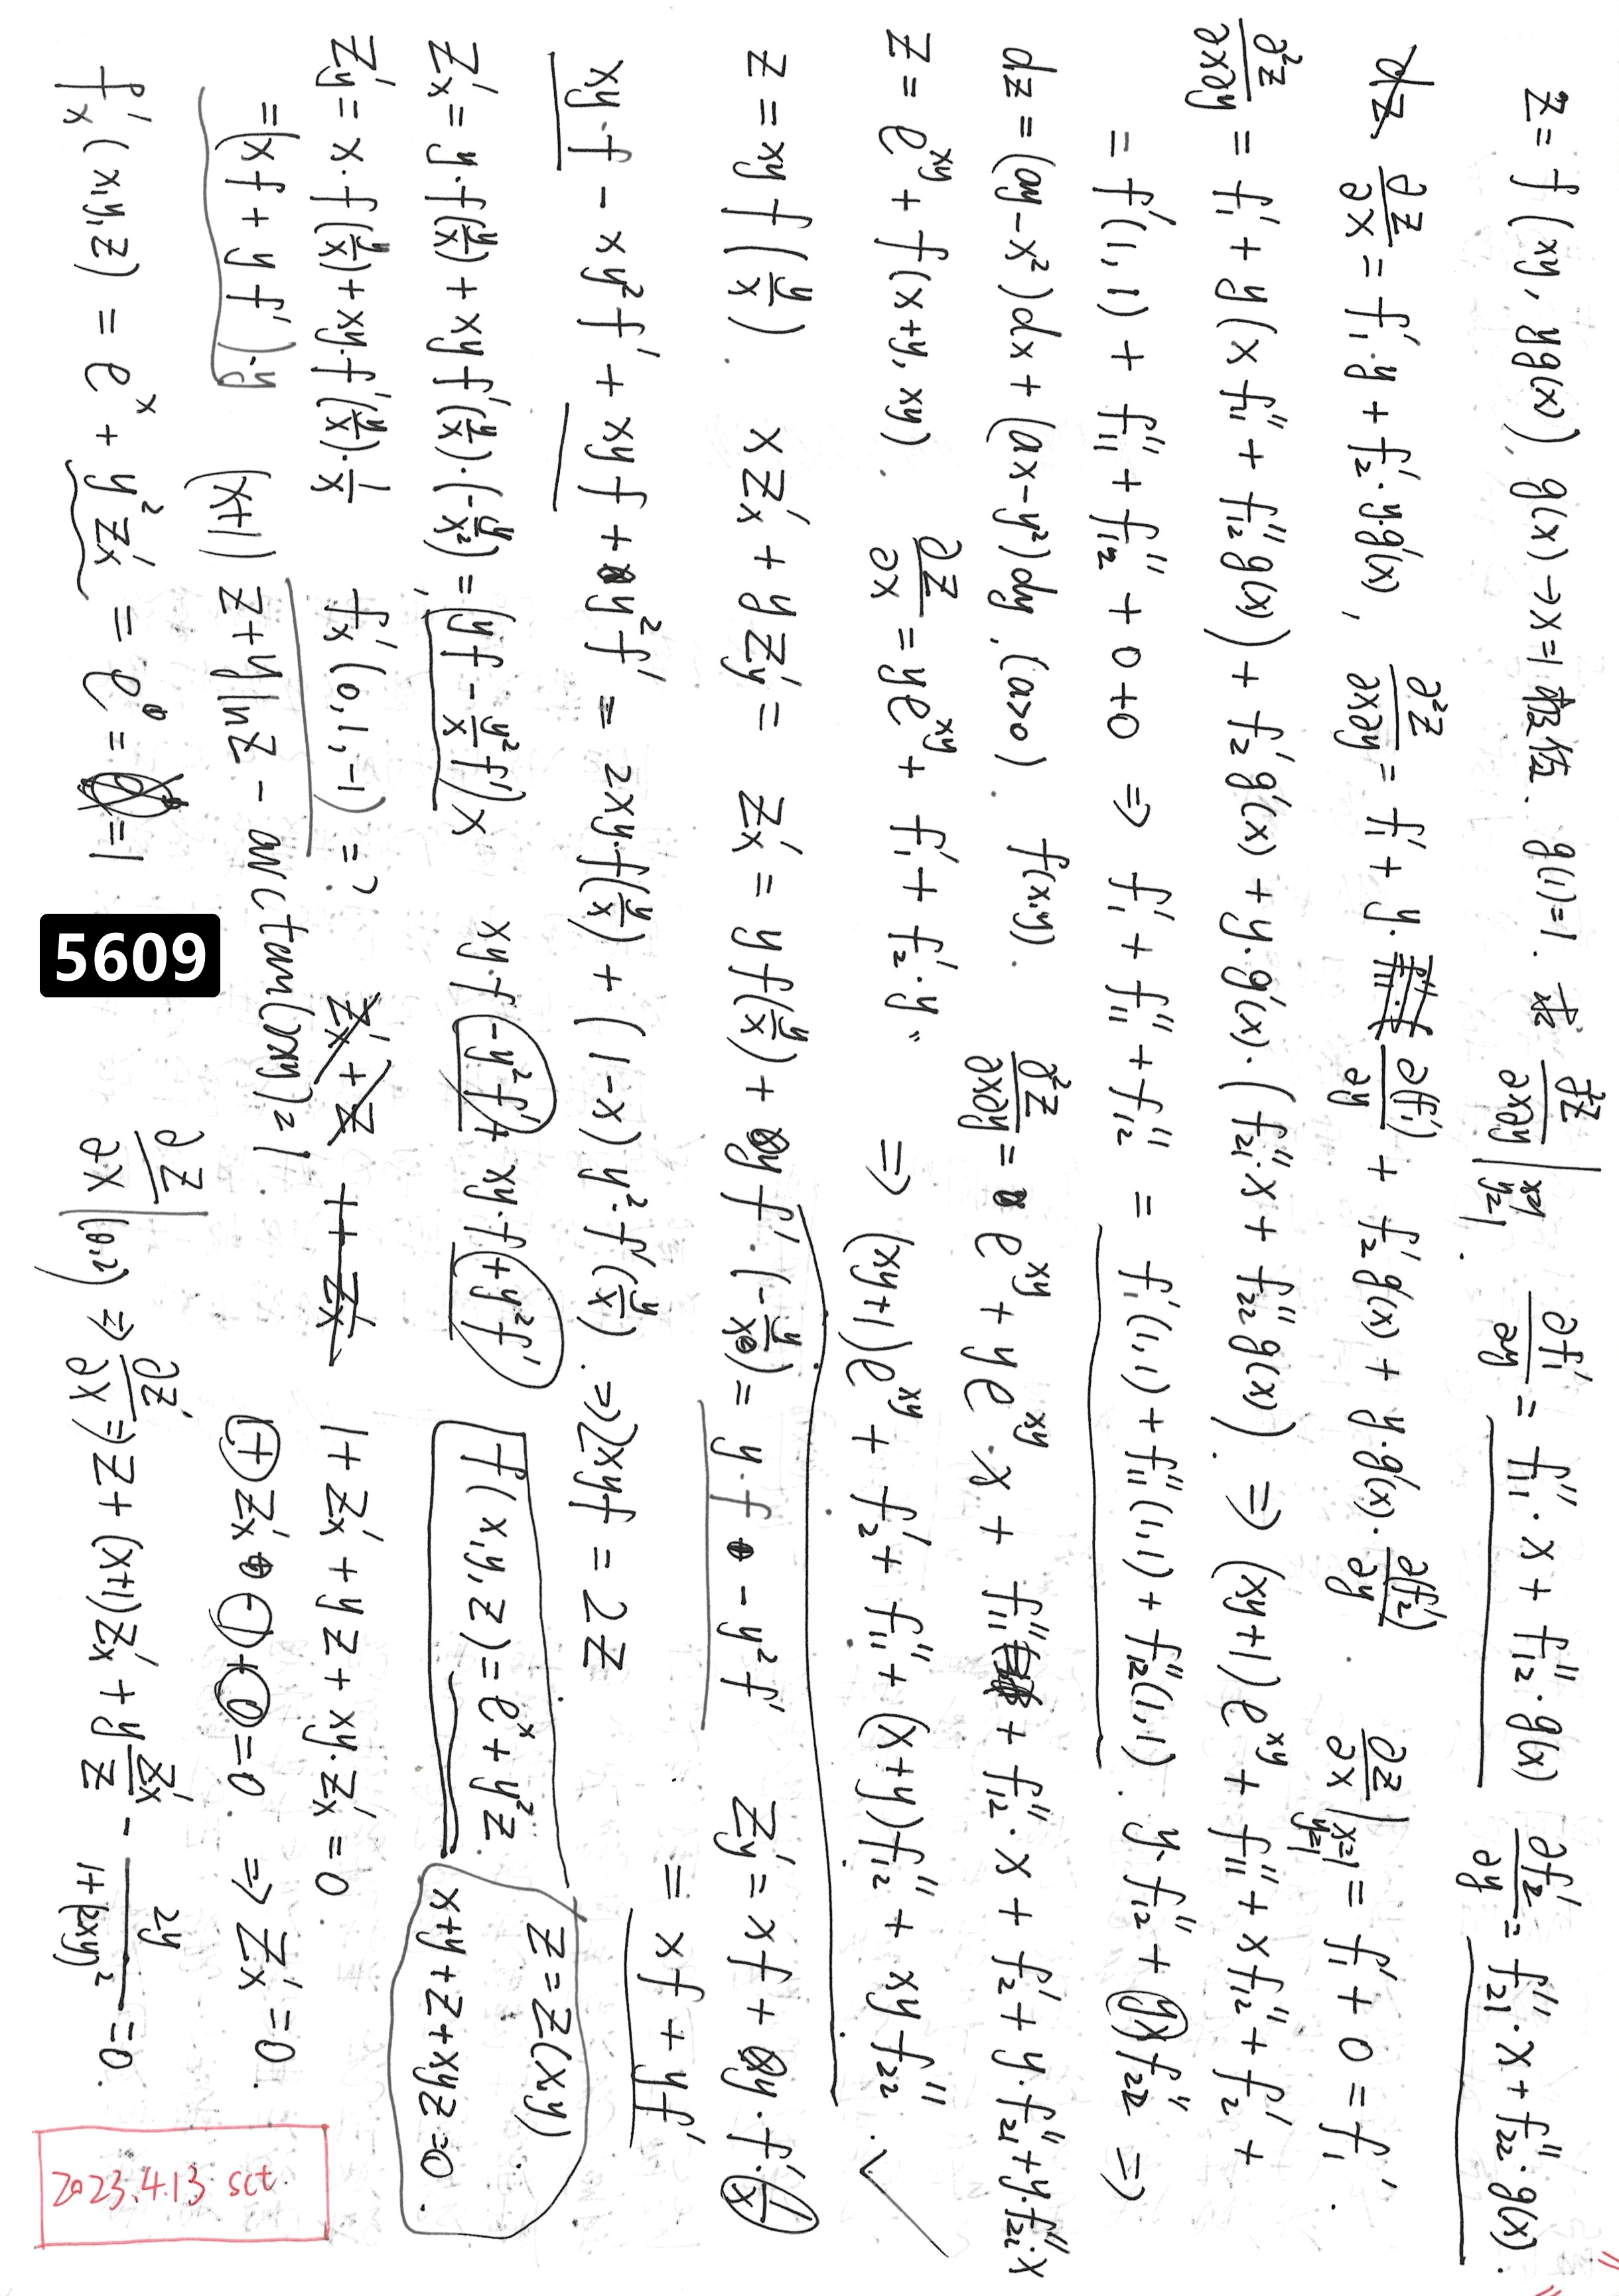 z = f(xy, yg(x)), g(x) → x=1 极值. g(1)=1. 求 ∂²z/∂x∂y |x=1 y=1. ∂f₁'/∂y = f₁₁''·x + f₁₂''·g(x) ∂f₂'/∂y = f₂₁''·x + f₂₂''·g(x).
dz ∂z/∂x = f₁'·y + f₂'·y·g'(x), ∂²z/∂x∂y = f₁' + y·∂(f₁')/∂y + f₂'g'(x) + y·g'(x)·∂(f₂')/∂y. ∂z/∂x |x=1 y=1 = f₁' + 0 = f₁'.
∂²z/∂x∂y = f₁' + y(x f₁₁'' + f₁₂''g(x)) + f₂'g'(x) + y·g'(x)·(f₂₁''·x + f₂₂''g(x)). ⇒ (xy+1)e^xy + f₁₁'' + x f₁₂'' + f₂' +
= f'(1,1) + f₁₁'' + f₁₂'' + 0+0 ⇒ f₁' + f₁₁'' + f₁₂'' = f₁'(1,1) + f₁₁''(1,1) + f₁₂''(1,1). y·f₁₂'' + yx f₂₂'' ⇒
dz = (ay-x²)dx + (ax-y²)dy, (a>0). f(x,y). ∂²z/∂x∂y = e^xy + ye^xy·x + f₁₁'' + f₁₂''·x + f₂' + y·f₂₁'' + y·f₂₂''·x
z = e^xy + f(x+y, xy). ∂z/∂x = ye^xy + f₁' + f₂'·y. ⇒ (xy+1)e^xy + f₂' + f₁₁'' + (x+y)f₁₂'' + xy f₂₂''. ✓
z = xy f(y/x). x zx' + y zy' = zx' = y f(y/x) + xy f'·(-y/x²) = y·f - y²f' zy' = xf + xy·f'(1/x)
= xf + yf'
xy·f - xy²f' + xyf + xy²f' = 2xy·f(y/x) + (1-x)y²·f'(y/x). ⇒ 2xyf = 2z
zx' = y·f(y/x) + xyf'(y/x)·(-y/x²) = (yf - y²f'/x)x xy·f - y²f' + xy·f + y²f' f(x,y,z) = e^x + y²z z = z(x,y) x+y+z+xyz=0.
zy' = x·f(y/x) + xy·f'(y/x)·1/x fx'(0,1,-1) = ? zx' + z 1+zx' 1 + zx' + yz + xy·zx' = 0
= (xf + yf')·y (x+1)z + y ln z - arctan(2xy) = 1. 1+zx' -1 + 0 = 0. ⇒ zx' = 0.
fx'(x,y,z) = e^x + y²zx' = e⁰ = 1 ∂z/∂x |(0,2) ⇒ ∂z'/∂x ⇒ z + (x+1)zx' + y zx'/z - 2y/1+(2xy)² = 0.
5609
2023.4.13 sct.